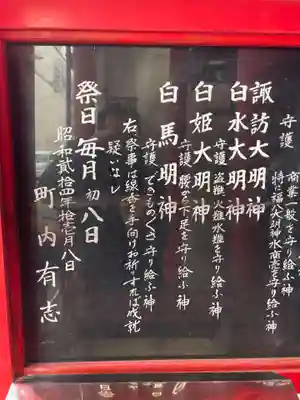 諏訪大明神
守護 商業一般を守り給ふ神
特に福大明神水商売を守り給ふ神
白水大明神
守護 盗難火難水難を守り給ふ神
白姫大明神
守護 腰から下足を守り給ふ神
白馬明神
守護 でのものくさ守り給ふ神
右祭事は線香を手向け御祈りすれば成就
疑いなし
祭日 毎月初八日
昭和弐拾四年拾壱月八日
町内有志